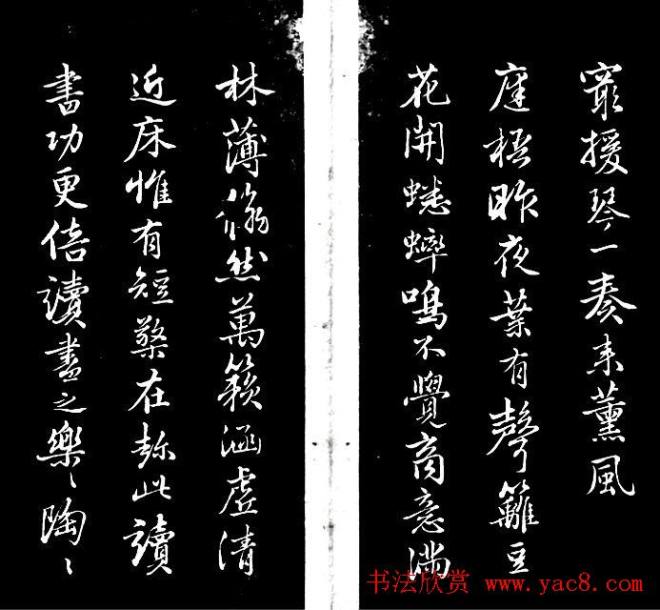 窮援琴一奏來薰風
庭梧昨夜葉有聲籬豆
花開蟋蟀鳴不覺商意滿
林薄翛然萬籟涵虛清
近床惟有短檠在此讀
書功更倍讀書之樂〻陶〻
书法欣赏 www.yac8.com